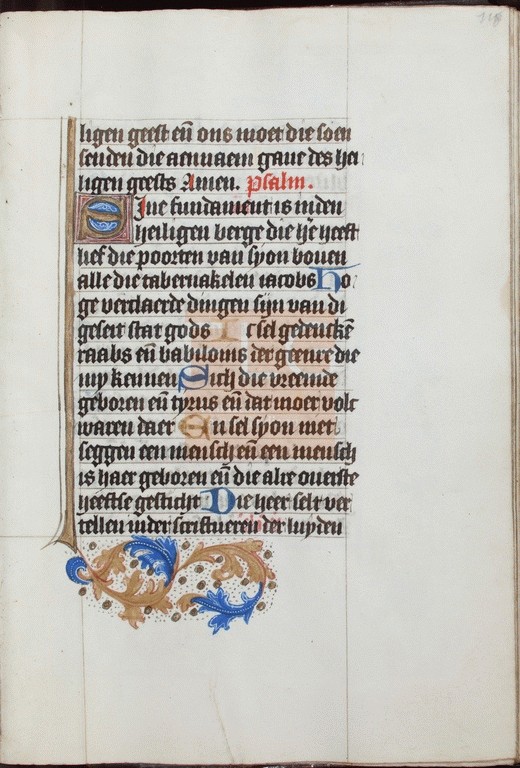 ligen geest en̄ ons moet die soen
senden die aenname gaue des hei
ligen geests Amen. psalm.
Sijne fundament is in den
heiligen berge die hēe heeft
lief die poorten van syon bouen
alle die tabernakelen iacobs Ho
ge verclaerde dingen sijn van di
geseit stat gods Ic sel gedencken̄
raabs en̄ babilonis der geenre die
my kennen Sich die vreemde
geboren en̄ tyrus en̄ dat moer volc
waren daer En sel syon niet
seggen een mensch en̄ een mensch
is haer geboren en̄ die alre ouerste
heeftse gesticht Die heer selt ver
tellen in der scriftueren der luyden